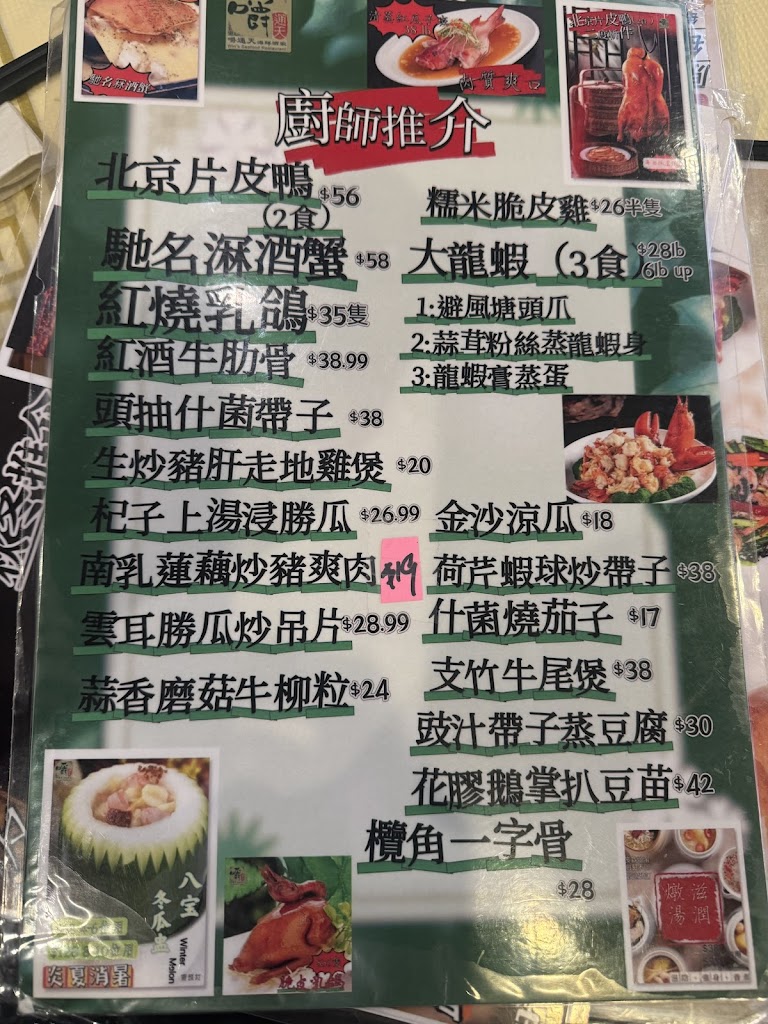 馳名淋酒蟹
嚐通天海鮮酒家
肉質爽口
北京片皮鴨
廚師推介
北京片皮鴨 $56
(2食)
馳名淋酒蟹 $58
紅燒乳鴿 $35隻
紅酒牛肋骨 $38.99
頭抽什菌帶子 $38
生炒豬肝走地雞煲 $20
杞子上湯浸勝瓜 $26.99
南乳蓮藕炒豬爽肉 $19
雲耳勝瓜炒吊片 $28.99
蒜香磨菇牛柳粒 $24
糯米脆皮雞 $26半隻
大龍蝦（3食） $28lb
6lb up
1:避風塘頭爪
2:蒜茸粉絲蒸龍蝦身
3:龍蝦膏蒸蛋
金沙涼瓜 $18
荷芹蝦球炒帶子 $38
什菌燒茄子 $17
支竹牛尾煲 $38
豉汁帶子蒸豆腐 $30
花膠鵝掌扒豆苗 $42
欖角一字骨
$28
八宝
冬瓜盅
Winter Melon
炎夏消暑
滋潤
燉湯